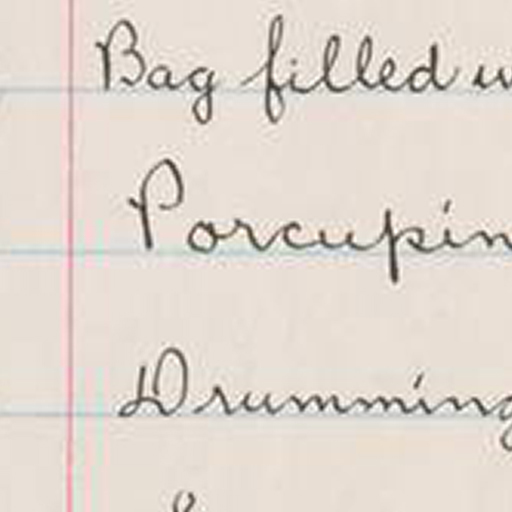 Bag filled w
Porcupin
Drumming